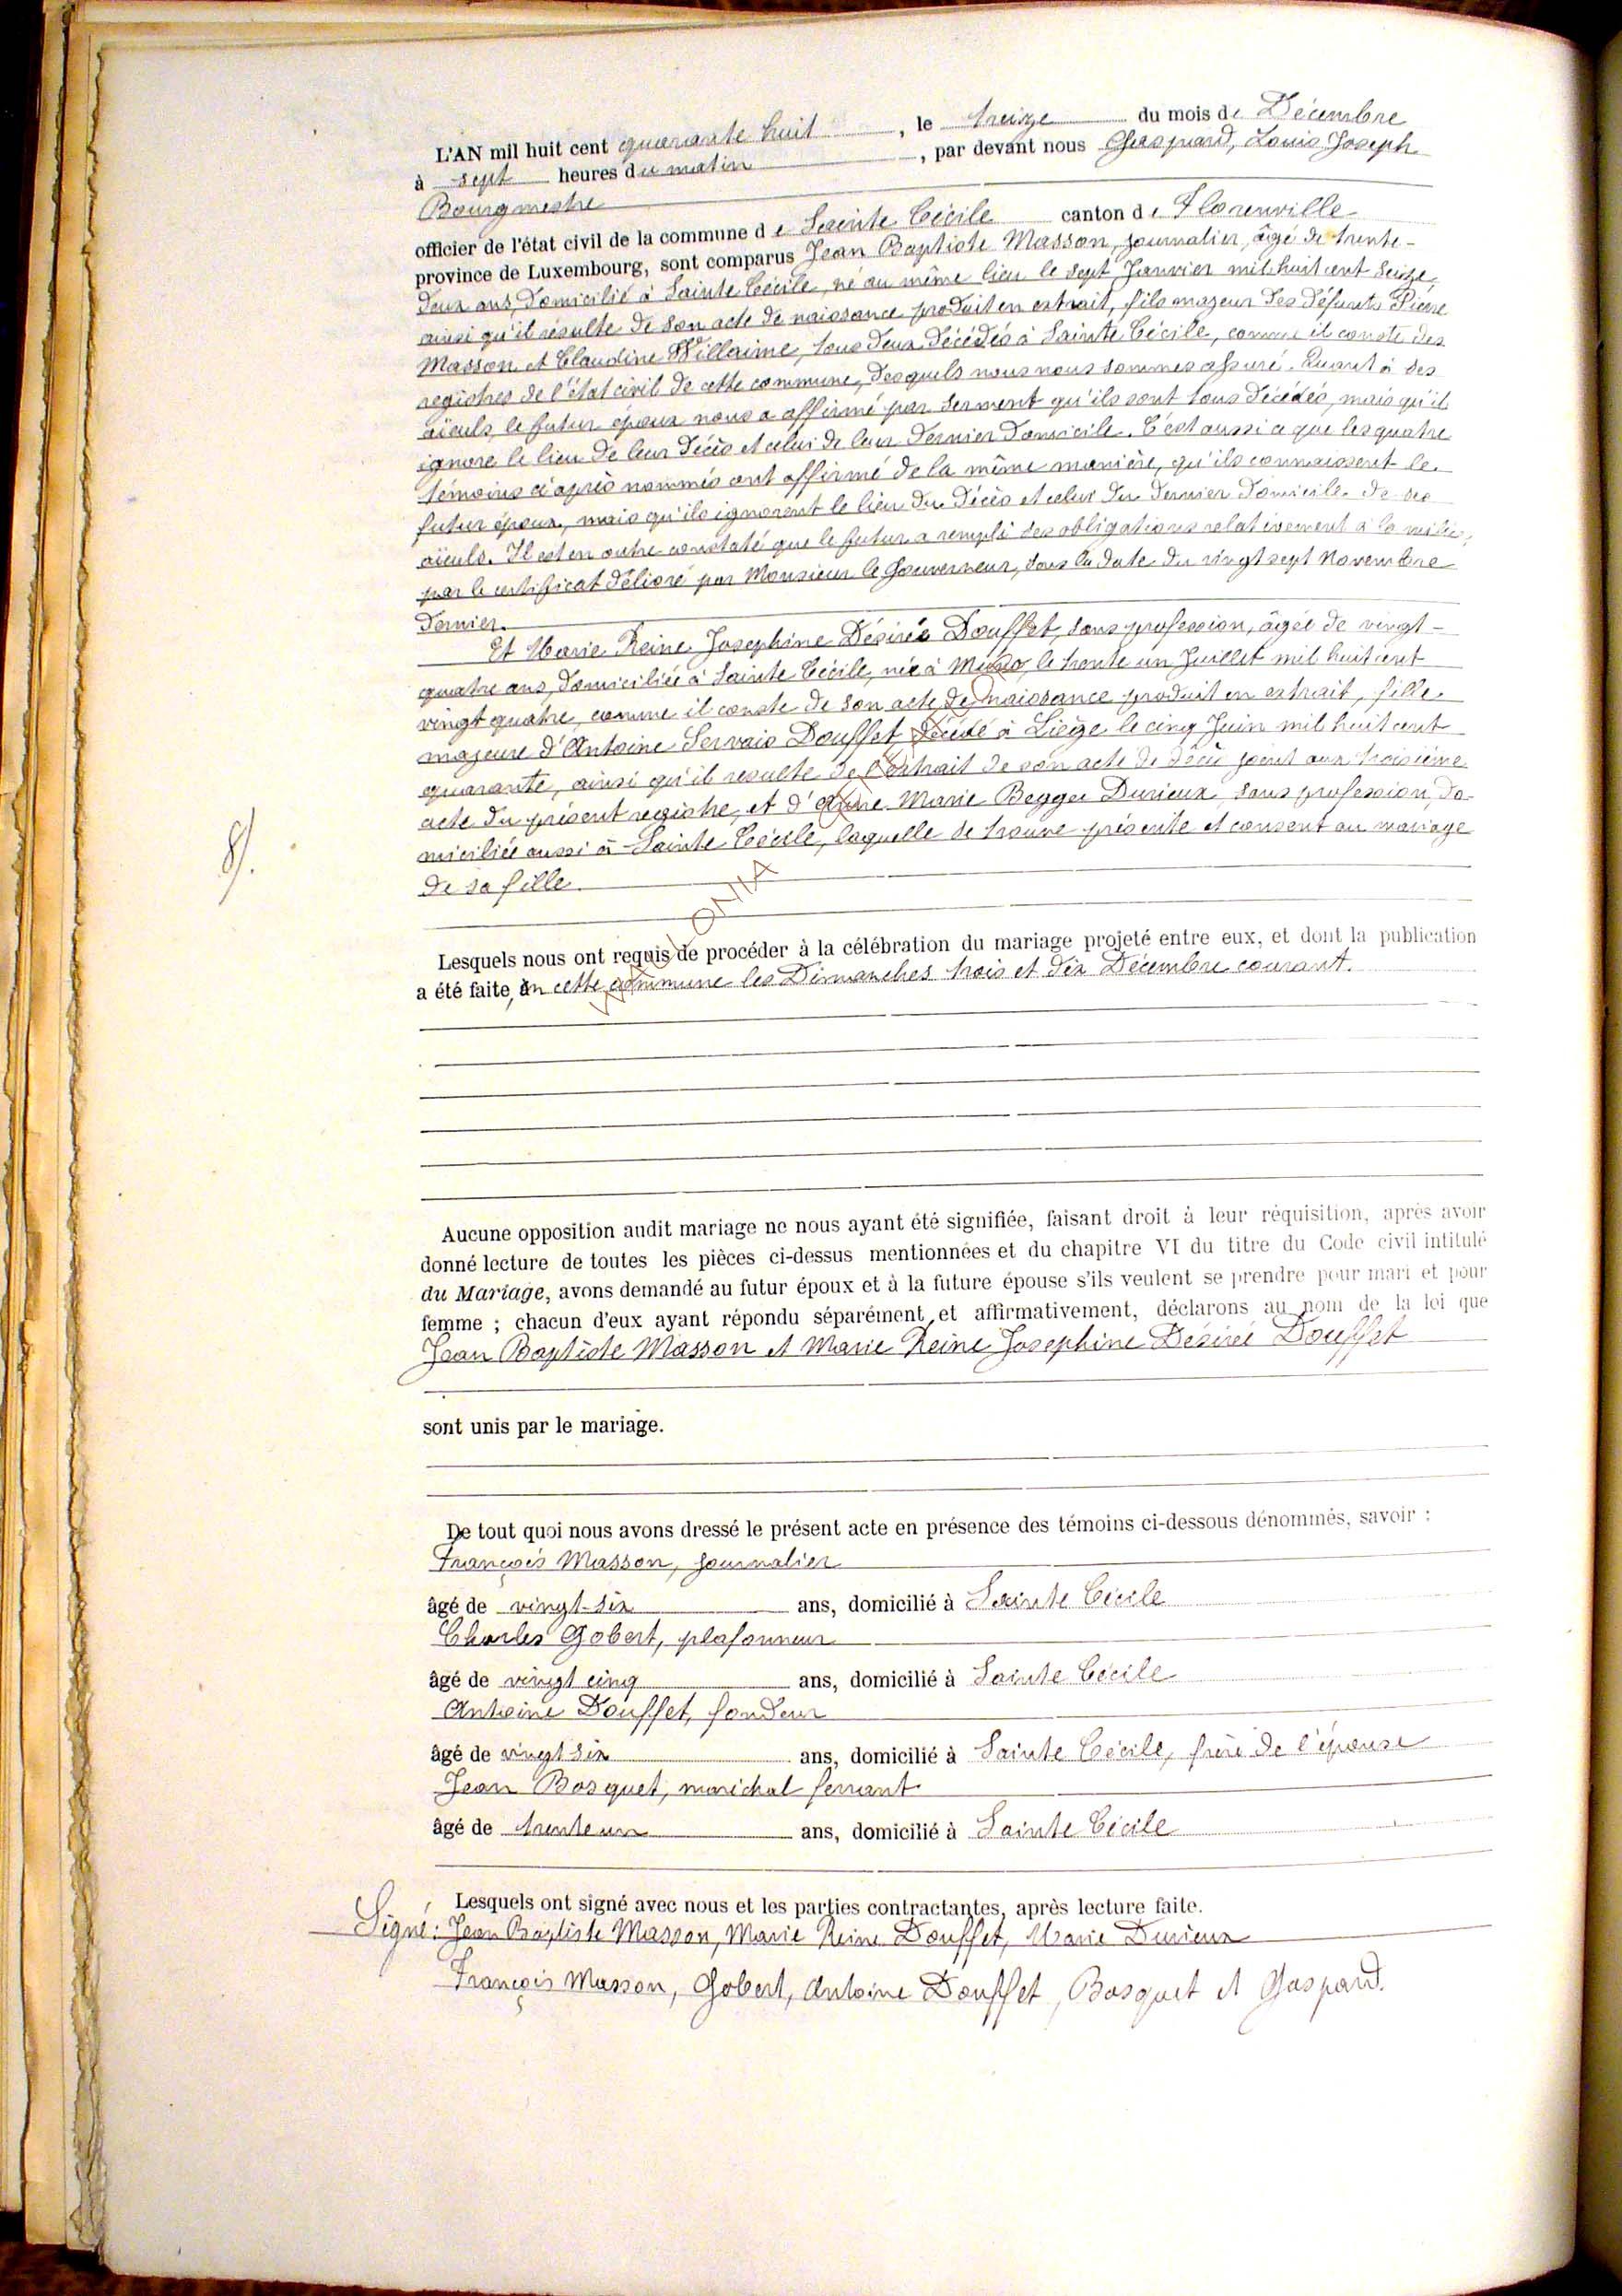 L'AN mil huit cent quarante huit, le treize du mois de Décembre
à sept heures du matin, par devant nous Gaspard, Louis Joseph
Bourgmestre
officier de l'état civil de la commune de Sainte Cécile canton de Florenville
province de Luxembourg, sont comparus Jean Baptiste Masson, journalier, âgé de trente-
deux ans, domicilié à Sainte Cécile, né au même lieu le sept Janvier mil huit cent seize,
ainsi qu'il résulte de son acte de naissance produit en extrait, fils majeur des défunts Pierre
Masson et Claudine Willaime, tous deux décédés à Sainte Cécile, comme il conste des
registres de l'état civil de cette commune, desquels nous nous sommes assuré. Quant à ses
aïeuls, le futur époux nous a affirmé par serment qu'ils sont tous décédés, mais qu'il
ignore le lieu de leur décès et celui de leur dernier domicile. C'est aussi ce que les quatre
témoins ci après nommés ont affirmé de la même manière, qu'ils connaissent le
futur époux, mais qu'ils ignorent le lieu du décès et celui du dernier domicile de ses
aïeuls. Il est en outre constaté que le futur a rempli ses obligations relativement à la milice,
par le certificat délivré par Monsieur le Gouverneur, sous la date du vingt sept Novembre
dernier.
Et Marie Reine Josephine Désirée Douffet, sans profession, âgée de vingt-
quatre ans, domiciliée à Sainte Cécile, née à le trente un Juillet mil huit cent
vingt quatre, comme il conste de son acte de naissance produit en extrait, fille
majeure d'Antoine Servais Douffet décédé à Liège le cinq Juin mil huit cent
quarante, ainsi qu'il resulte de l'extrait de son acte de décès joint aux troisième
acte du présent registre, et d'Anne Marie Begge Durieux, sans profession, do-
miciliée aussi à Sainte Cécile, laquelle se trouve présente et consent au mariage
de sa fille.
8).
Lesquels nous ont requis de procéder à la célébration du mariage projeté entre eux, et dont la publication
a été faite, en cette commune les Dimanches trois et dix Décembre courant.
Aucune opposition audit mariage ne nous ayant été signifiée, faisant droit à leur réquisition, après avoir
donné lecture de toutes les pièces ci-dessus mentionnées et du chapitre VI du titre du Code civil intitulé
du Mariage, avons demandé au futur époux et à la future épouse s'ils veulent se prendre pour mari et pour
femme ; chacun d'eux ayant répondu séparément et affirmativement, déclarons au nom de la loi que
Jean Baptiste Masson et Marie Reine Josephine Désirée Douffet
sont unis par le mariage.
De tout quoi nous avons dressé le présent acte en présence des témoins ci-dessous dénommés, savoir :
François Masson, journalier
âgé de vingt-six ans, domicilié à Sainte Cécile
Charles Gobert, plafonneur
âgé de vingt cinq ans, domicilié à Sainte Cécile
Antoine Douffet, fondeur
âgé de vingt six ans, domicilié à Sainte Cécile, frère de l'épouse
Jean Bosquet, maréchal ferrant
âgé de trente un ans, domicilié à Sainte Cécile
Lesquels ont signé avec nous et les parties contractantes, après lecture faite.
Signé : Jean Baptiste Masson, Marie Reine Douffet, Marie Durieux
François Masson, Gobert, Antoine Douffet, Bosquet et Gaspard.